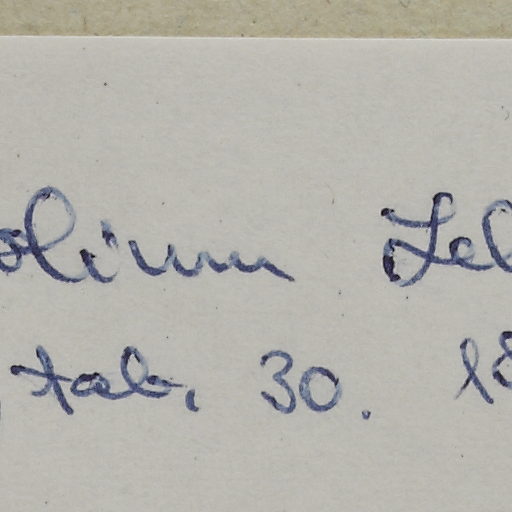 olium Lel
, tab. 30. 18